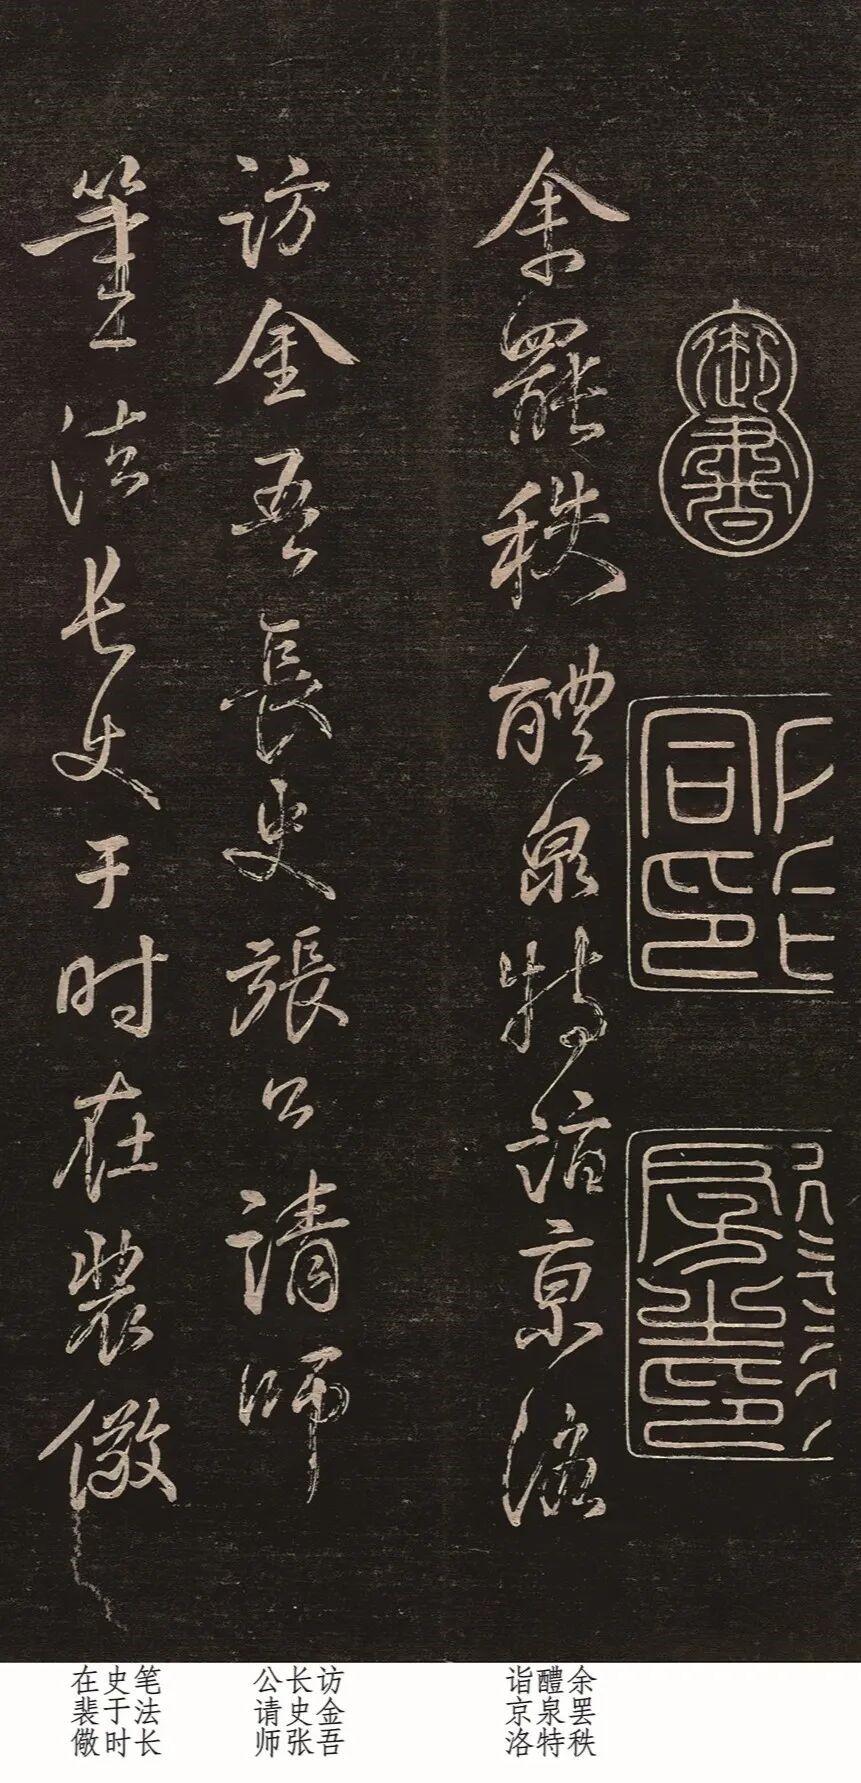 御書
余罷秩醴泉特詣京洛
訪金吾長史張公請師
筆法長史于时在裴儆
余罢秩
醴泉特
诣京洛
访金吾
长史张
公请师
笔法长
史于时
在裴儆